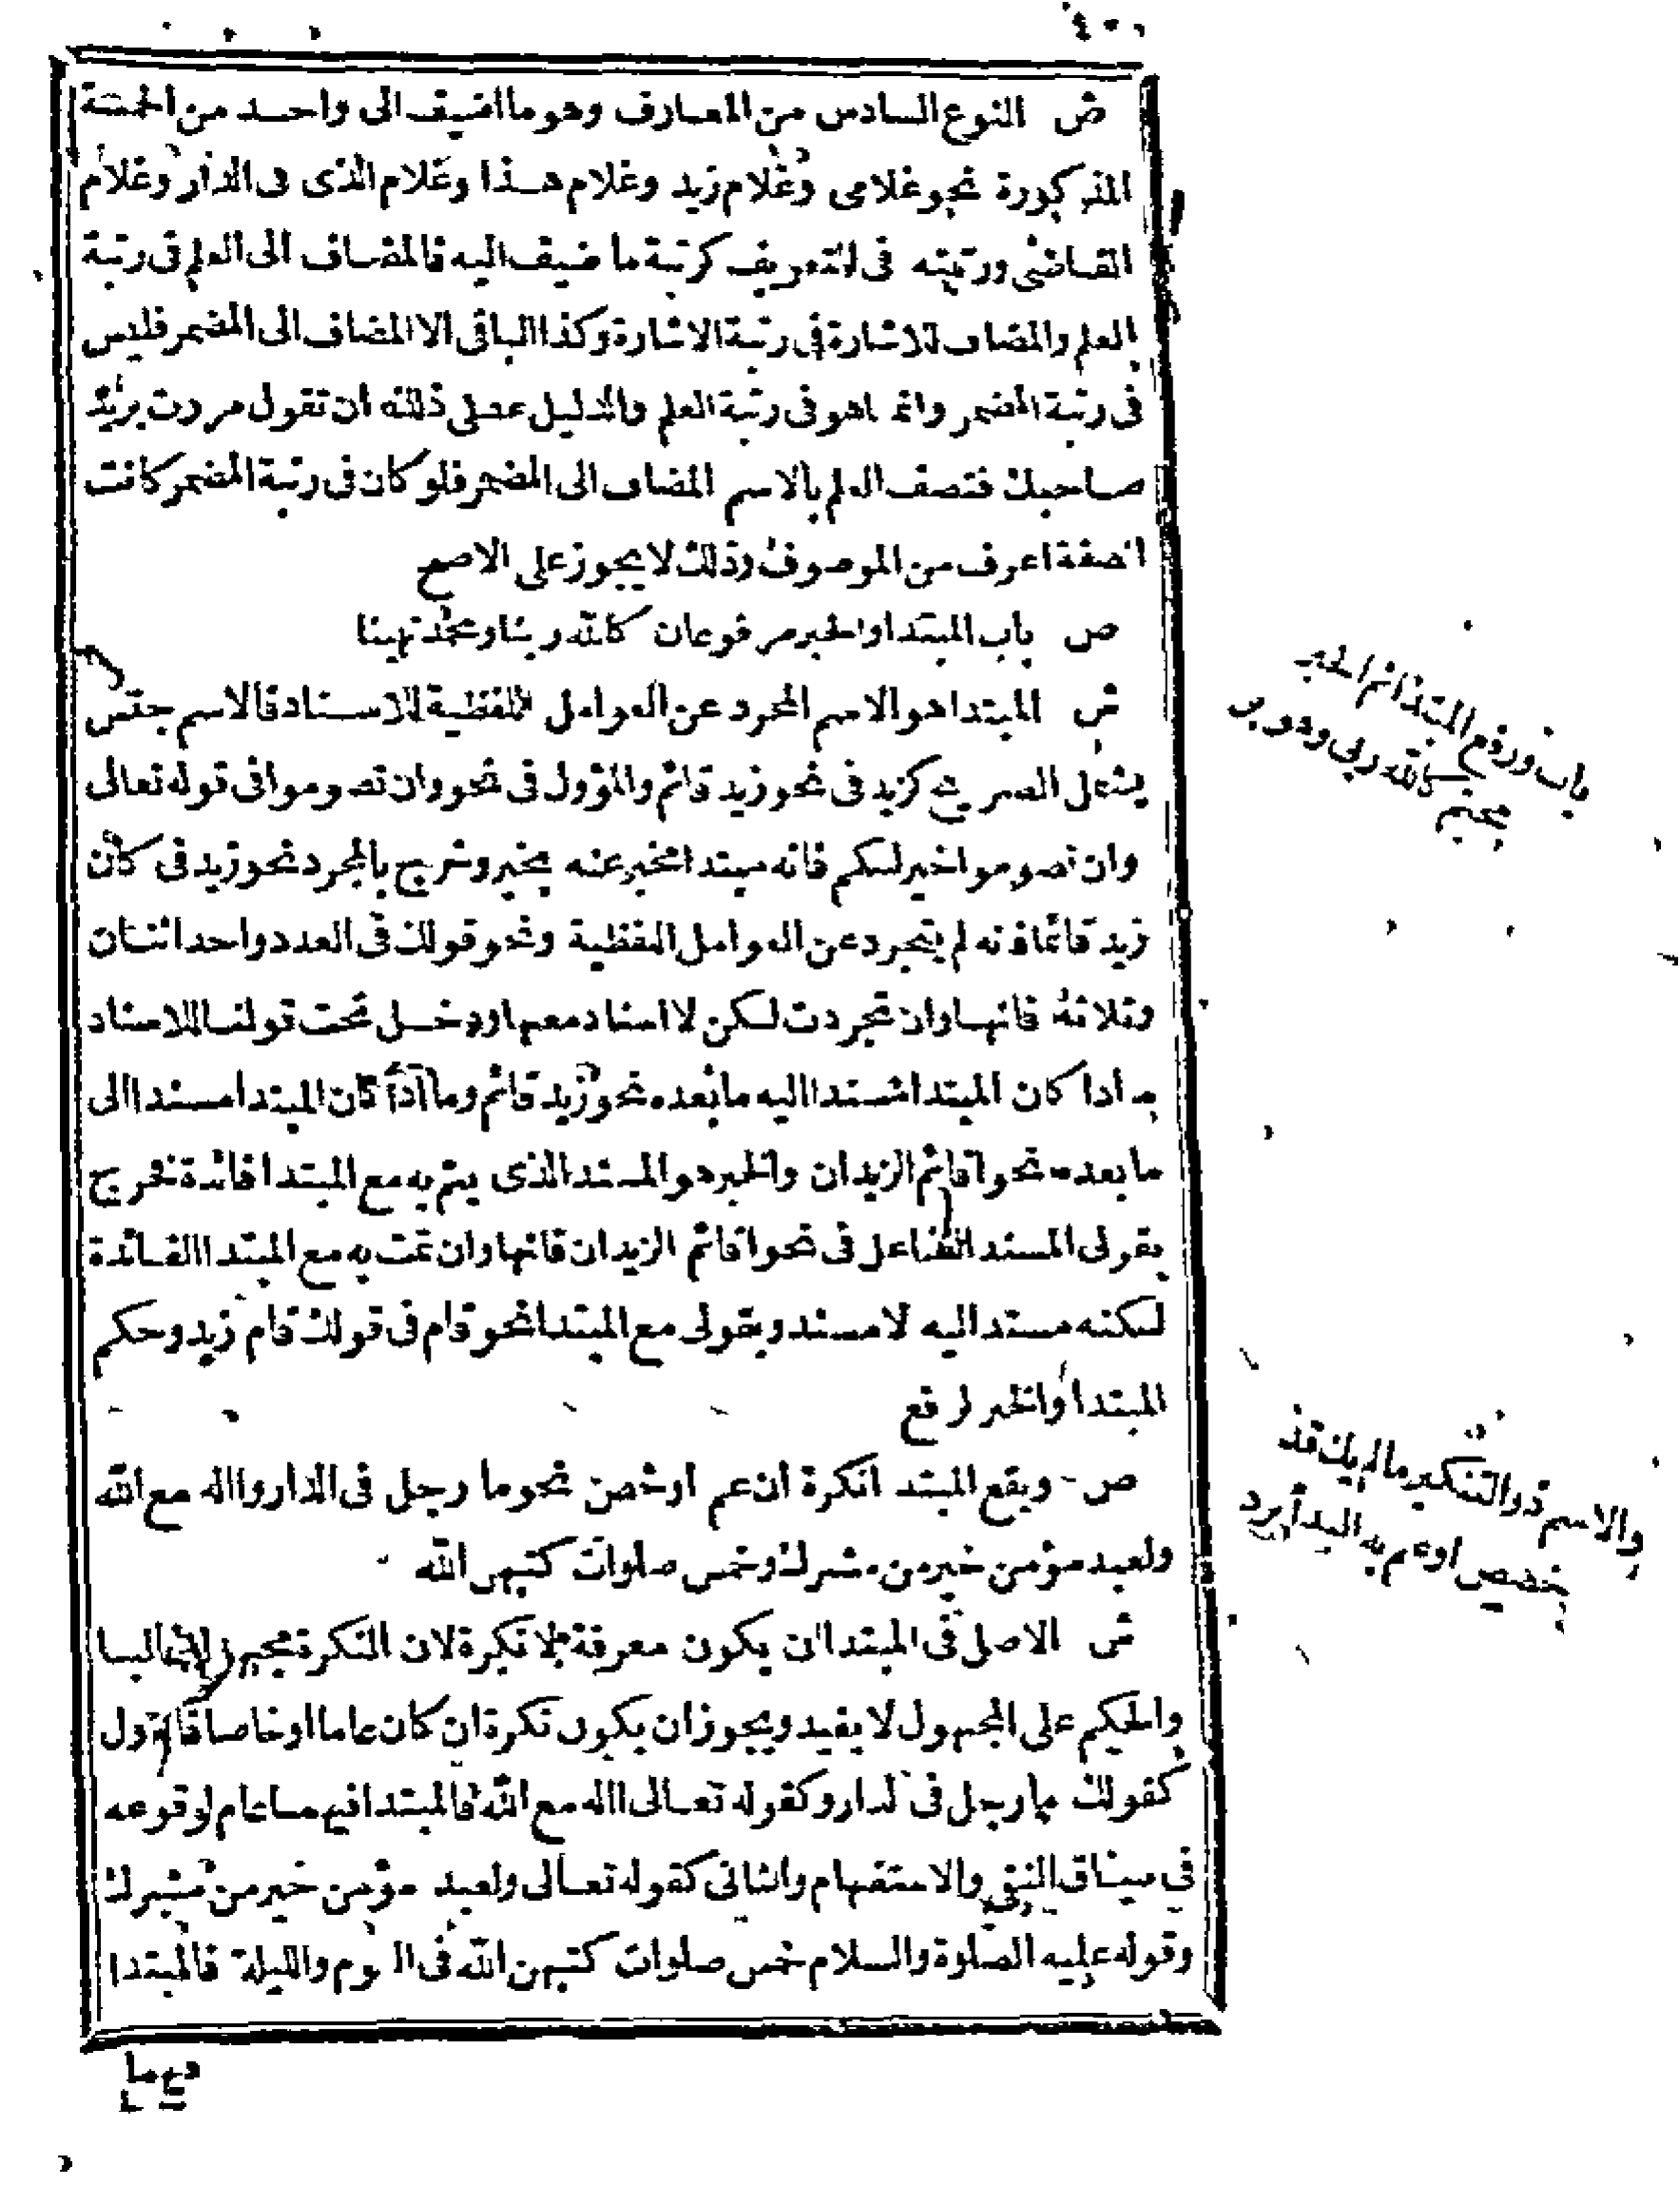 ش النوع السادس من المعارف وهو ما اضيف الى واحد من الخمسة
المذكورة نحو غلامى وغلام زيد وغلام هذا وغلام الذى فى الدار وغلام
القاضى ورتبته فى التعريف كرتبة ما ضيف اليه فالمضاف الى العلم فى رتبة
العلم والمضاف للاشارة فى رتبة الاشارة وكذا الباقى الا المضاف الى المضمر فليس
فى رتبة المضمر وانما هو فى رتبة العلم والدليل على ذلك ان تقول مررت بزيد
صاحبك فتصف العلم بالاسم المضاف الى المضمر فلو كان فى رتبة المضمر كانت
الصفة اعرف من الموصوف وذلك لا يجوز على الاصح
ص باب المبتدا والخبر مرفوعان كالله ربنا ومحمد نبينا
ش المبتدا هو الاسم المجرد عن العوامل اللفظية للاسناد فالاسم جنس
يشمل الصريح كزيد فى نحو زيد قائم والمؤول فى نحو وان تصوموا فى قوله تعالى
وان تصوموا خير لكم فانه مبتدا مخبر عنه بخبر وخرج بالمجرد نحو زيد فى كان
زيد قائما فانه لم يتجرد عن العوامل اللفظية ونحو قولك فى العدد واحد اثنان
وثلاثة فانها وان تجردت لكن لا اسناد معها ودخل تحت قولنا للاسناد
ما اذا كان المبتدا مسندا اليه ما بعده نحو زيد قائم وما اذا كان المبتدا مسندا الى
ما بعده نحو اقائم الزيدان والخبر هو المسند الذى يتم به مع المبتدا فائدة فخرج
بقولى المسند الفاعل فى نحو اقائم الزيدان فانها وان تمت به مع المبتدا الفائدة
لكنه مسند اليه لا مسند وبقولى مع المبتدا نحو قام فى قولك قام زيد وحكم
المبتدا والخبر لرفع
ص ويقع المبتدا نكرة ان عم او خص نحو ما رجل فى الدار واإله مع الله
ولعبد مؤمن خير من مشرك وخمس صلوات كتبهن الله
ش الاصل فى المبتدا ان يكون معرفة لا نكرة لان النكرة مجهولة غالبا
والحكم على المجهول لا يفيد ويجوز ان يكون نكرة ان كان عاما او خاصا فالاول
كقولك ما رجل فى لدار وكقوله تعالى االه مع الله فالمبتدا فيهما عام لوقوعه
في سياق النفى والاستفهام والثانى كقوله تعالى ولعبد مؤمن خير من مشرك
وقوله عليه الصلوة والسلام خمس صلوات كتبهن الله فى اليوم والليلة فالمبتدا
باب ورفع المبتدا ثم الخبر
كالله ربى وهو بر
والاسم ذو التنكير ما لم يك قد
يخصص او عم به البدأ يرد